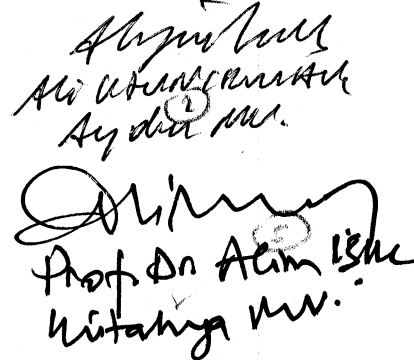 Ali UZUNIRMAK
1
Aydın Mv.
Prof. Dr Alim IŞIK
Kütahya Mv.